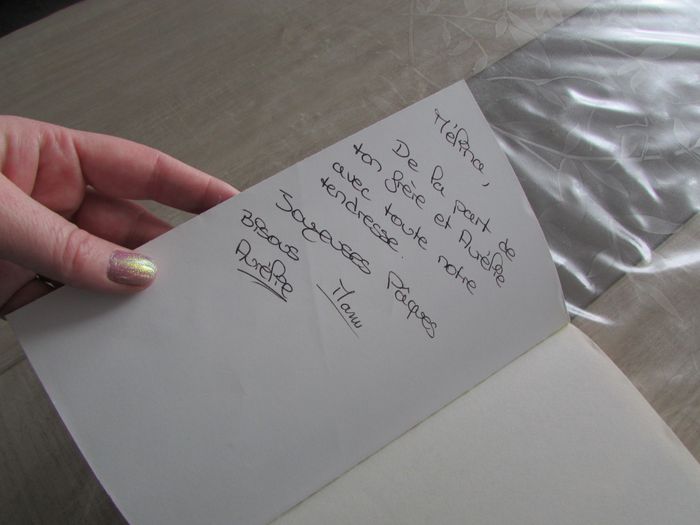 Mélina,
De la part de
ton frère et Aurélie
avec toute notre
tendresse.
Joyeuses Pâques
Bisous Manu
Aurélie